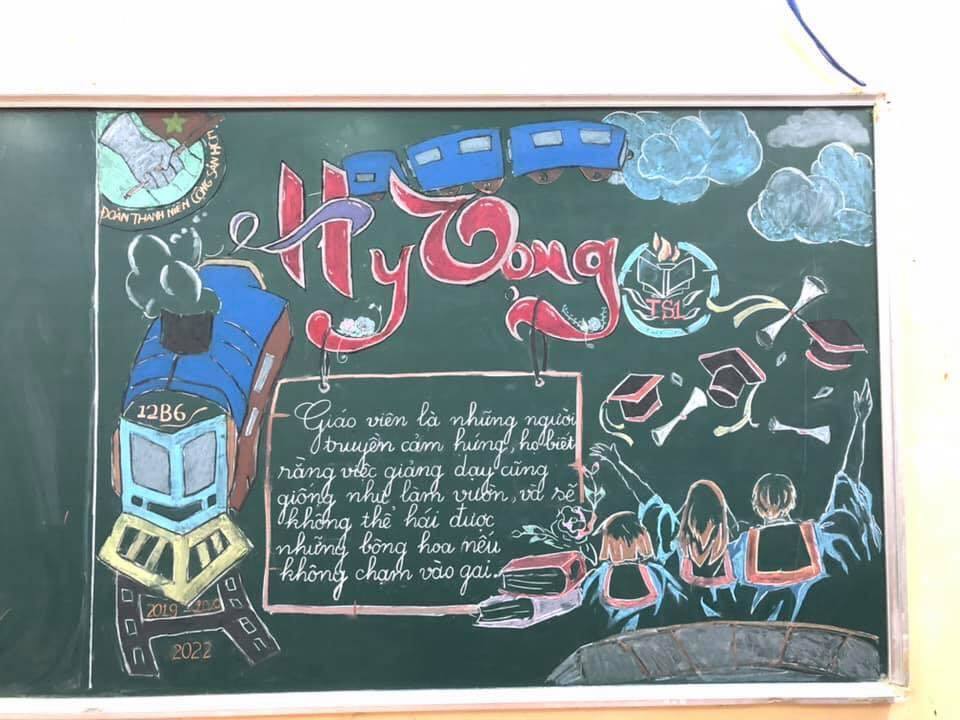 ĐOÀN THANH NIÊN CỘNG SẢN HCM
Hy Vọng
TS1
12B6
Giáo viên là những người
truyền cảm hứng, họ biết
rằng việc giảng dạy cũng
giống như làm vườn, và sẽ
không thể hái được
những bông hoa nếu
không chạm vào gai.
2019 - 2020
2022